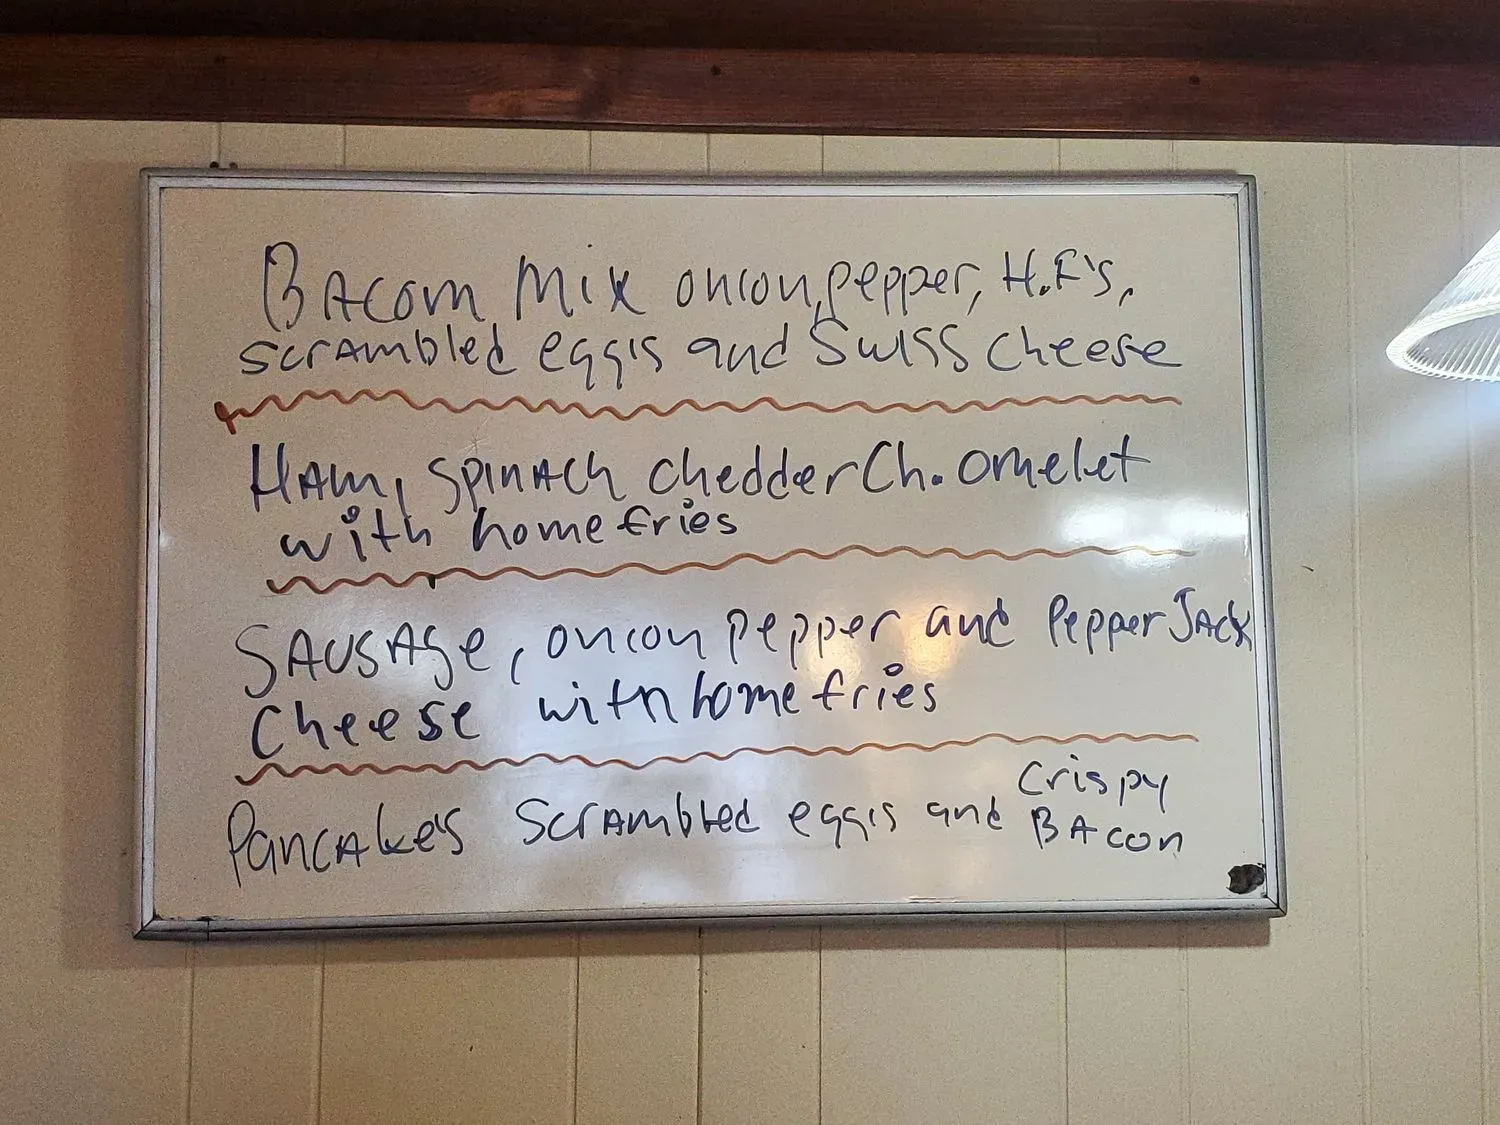 BAcom Mix onion, pepper, H.F's,
scrambled eggis and Swiss cheese
HAm, spinAch chedder Ch. omelet
with home fries
SAusAge, onion pepper and Pepper JAck
Cheese with home fries
PancAke's ScrAmbled eggis and Crispy
BAcon